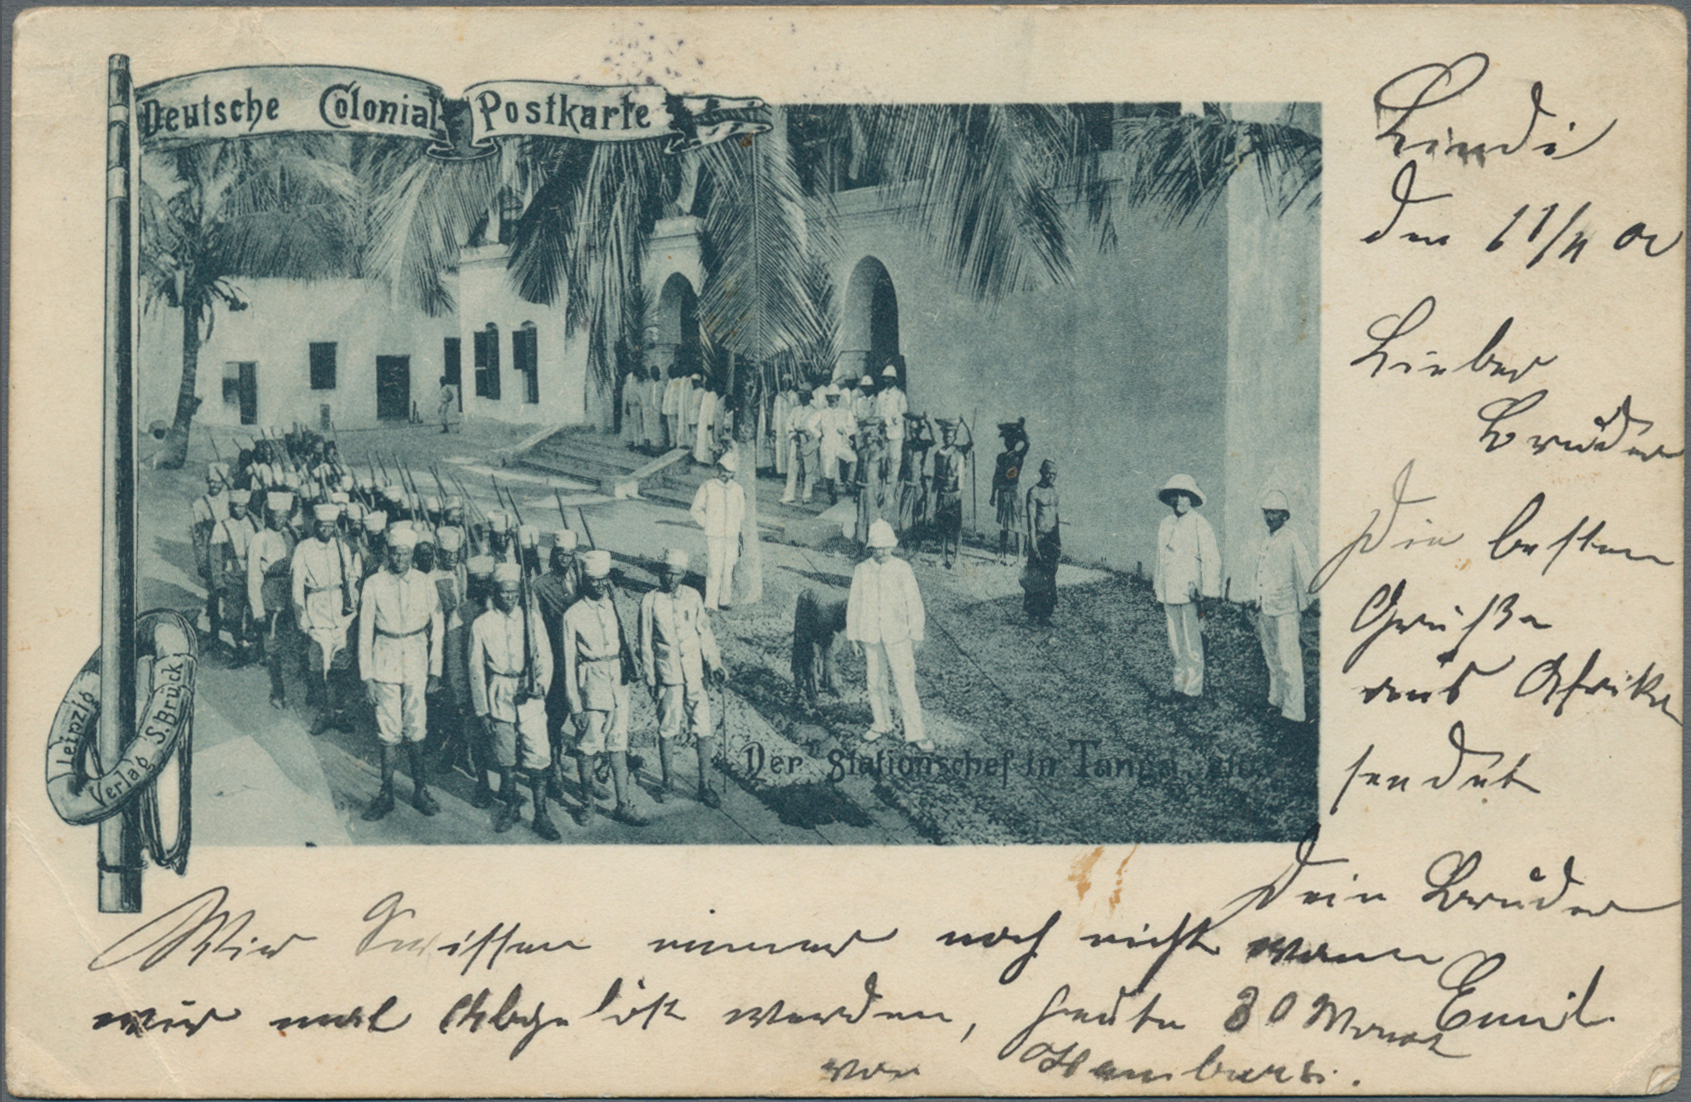 Deutsche Colonial-Postkarte
Leipzig
Verlag S. Brück
Der Stationschef in Tanga, etc.
Lindi
den 11/4 02
Lieber
Bruder
Die besten
Grüße
aus Afrika
sendet
Dein Bruder
Emil
Wir wissen immer noch nicht wann
wir mal Abgelöst werden, heute 30 Monat
von Hamburg.